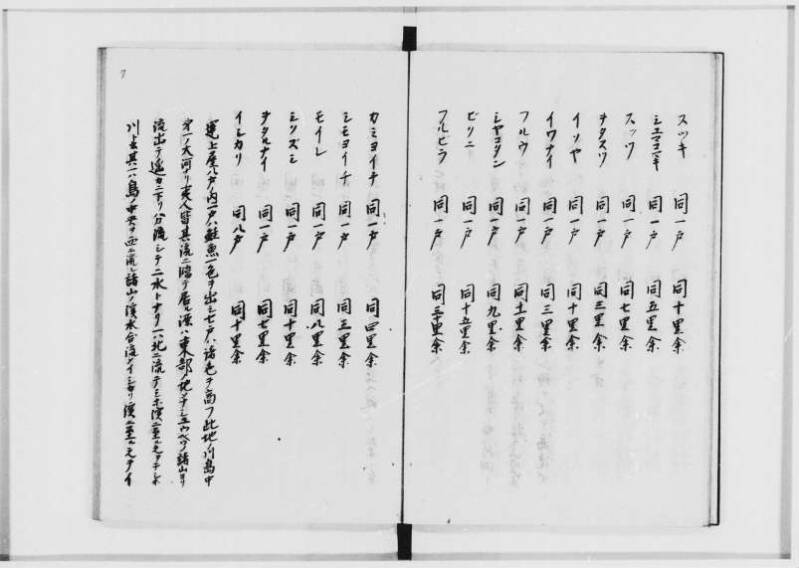 スツキ 同一戸 同十里余
シマコマキ 同一戸 同五里余
スツツ 同一戸 同七里余
ヲタスツ 同一戸 同三里余
イソヤ 同一戸 同十里余
イワナイ 同一戸 同三里余
フルウ 同一戸 同十里余
シヤコタン 同一戸 同九里余
ビクニ 同一戸 同十五里余
フルビラ 同一戸 同三十里余
カミヨイチ 同一戸 同四里余
シモヨイチ 同一戸 同三里余
モイレ 同一戸 同八里余
シツズミ 同一戸 同十里余
ヲタルナイ 同一戸 同七里余
イシカリ 同八戸 同十里余
運上屋八戸ノ内一戸ハ鮭魚一色ヲ出シ七戸ハ諸色ヲ商フ此地川島中
第一ノ大河ナリ夷人皆其流ニ臨テ居ル源ハ東部ノ地 諸山ヨリ
流出テ遥カニ下リ分流シテ二水トナリ一ハ北ニ流テ 濱ニ至ル之ヲテシホ
川ト云其一ハ島ノ中央ヲ西ニ流レ諸山ノ渓水合流シイシカリ濱ニ至ル之ヲイ